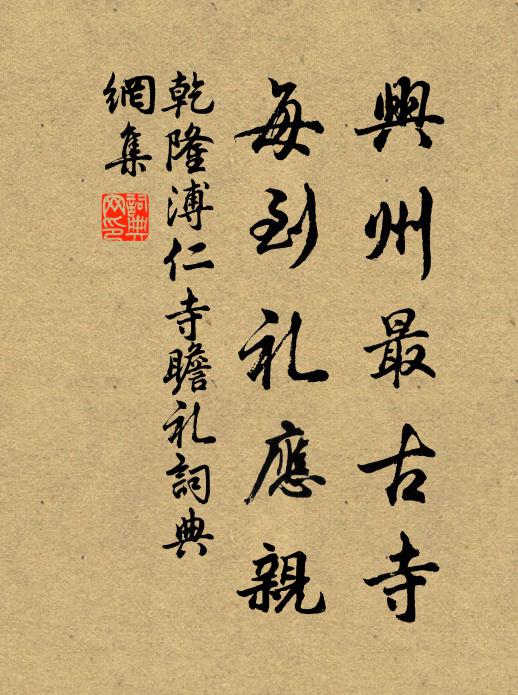 興州最古寺
每到礼應親
乾隆溥仁寺瞻礼詞典
網集
詞典
网印